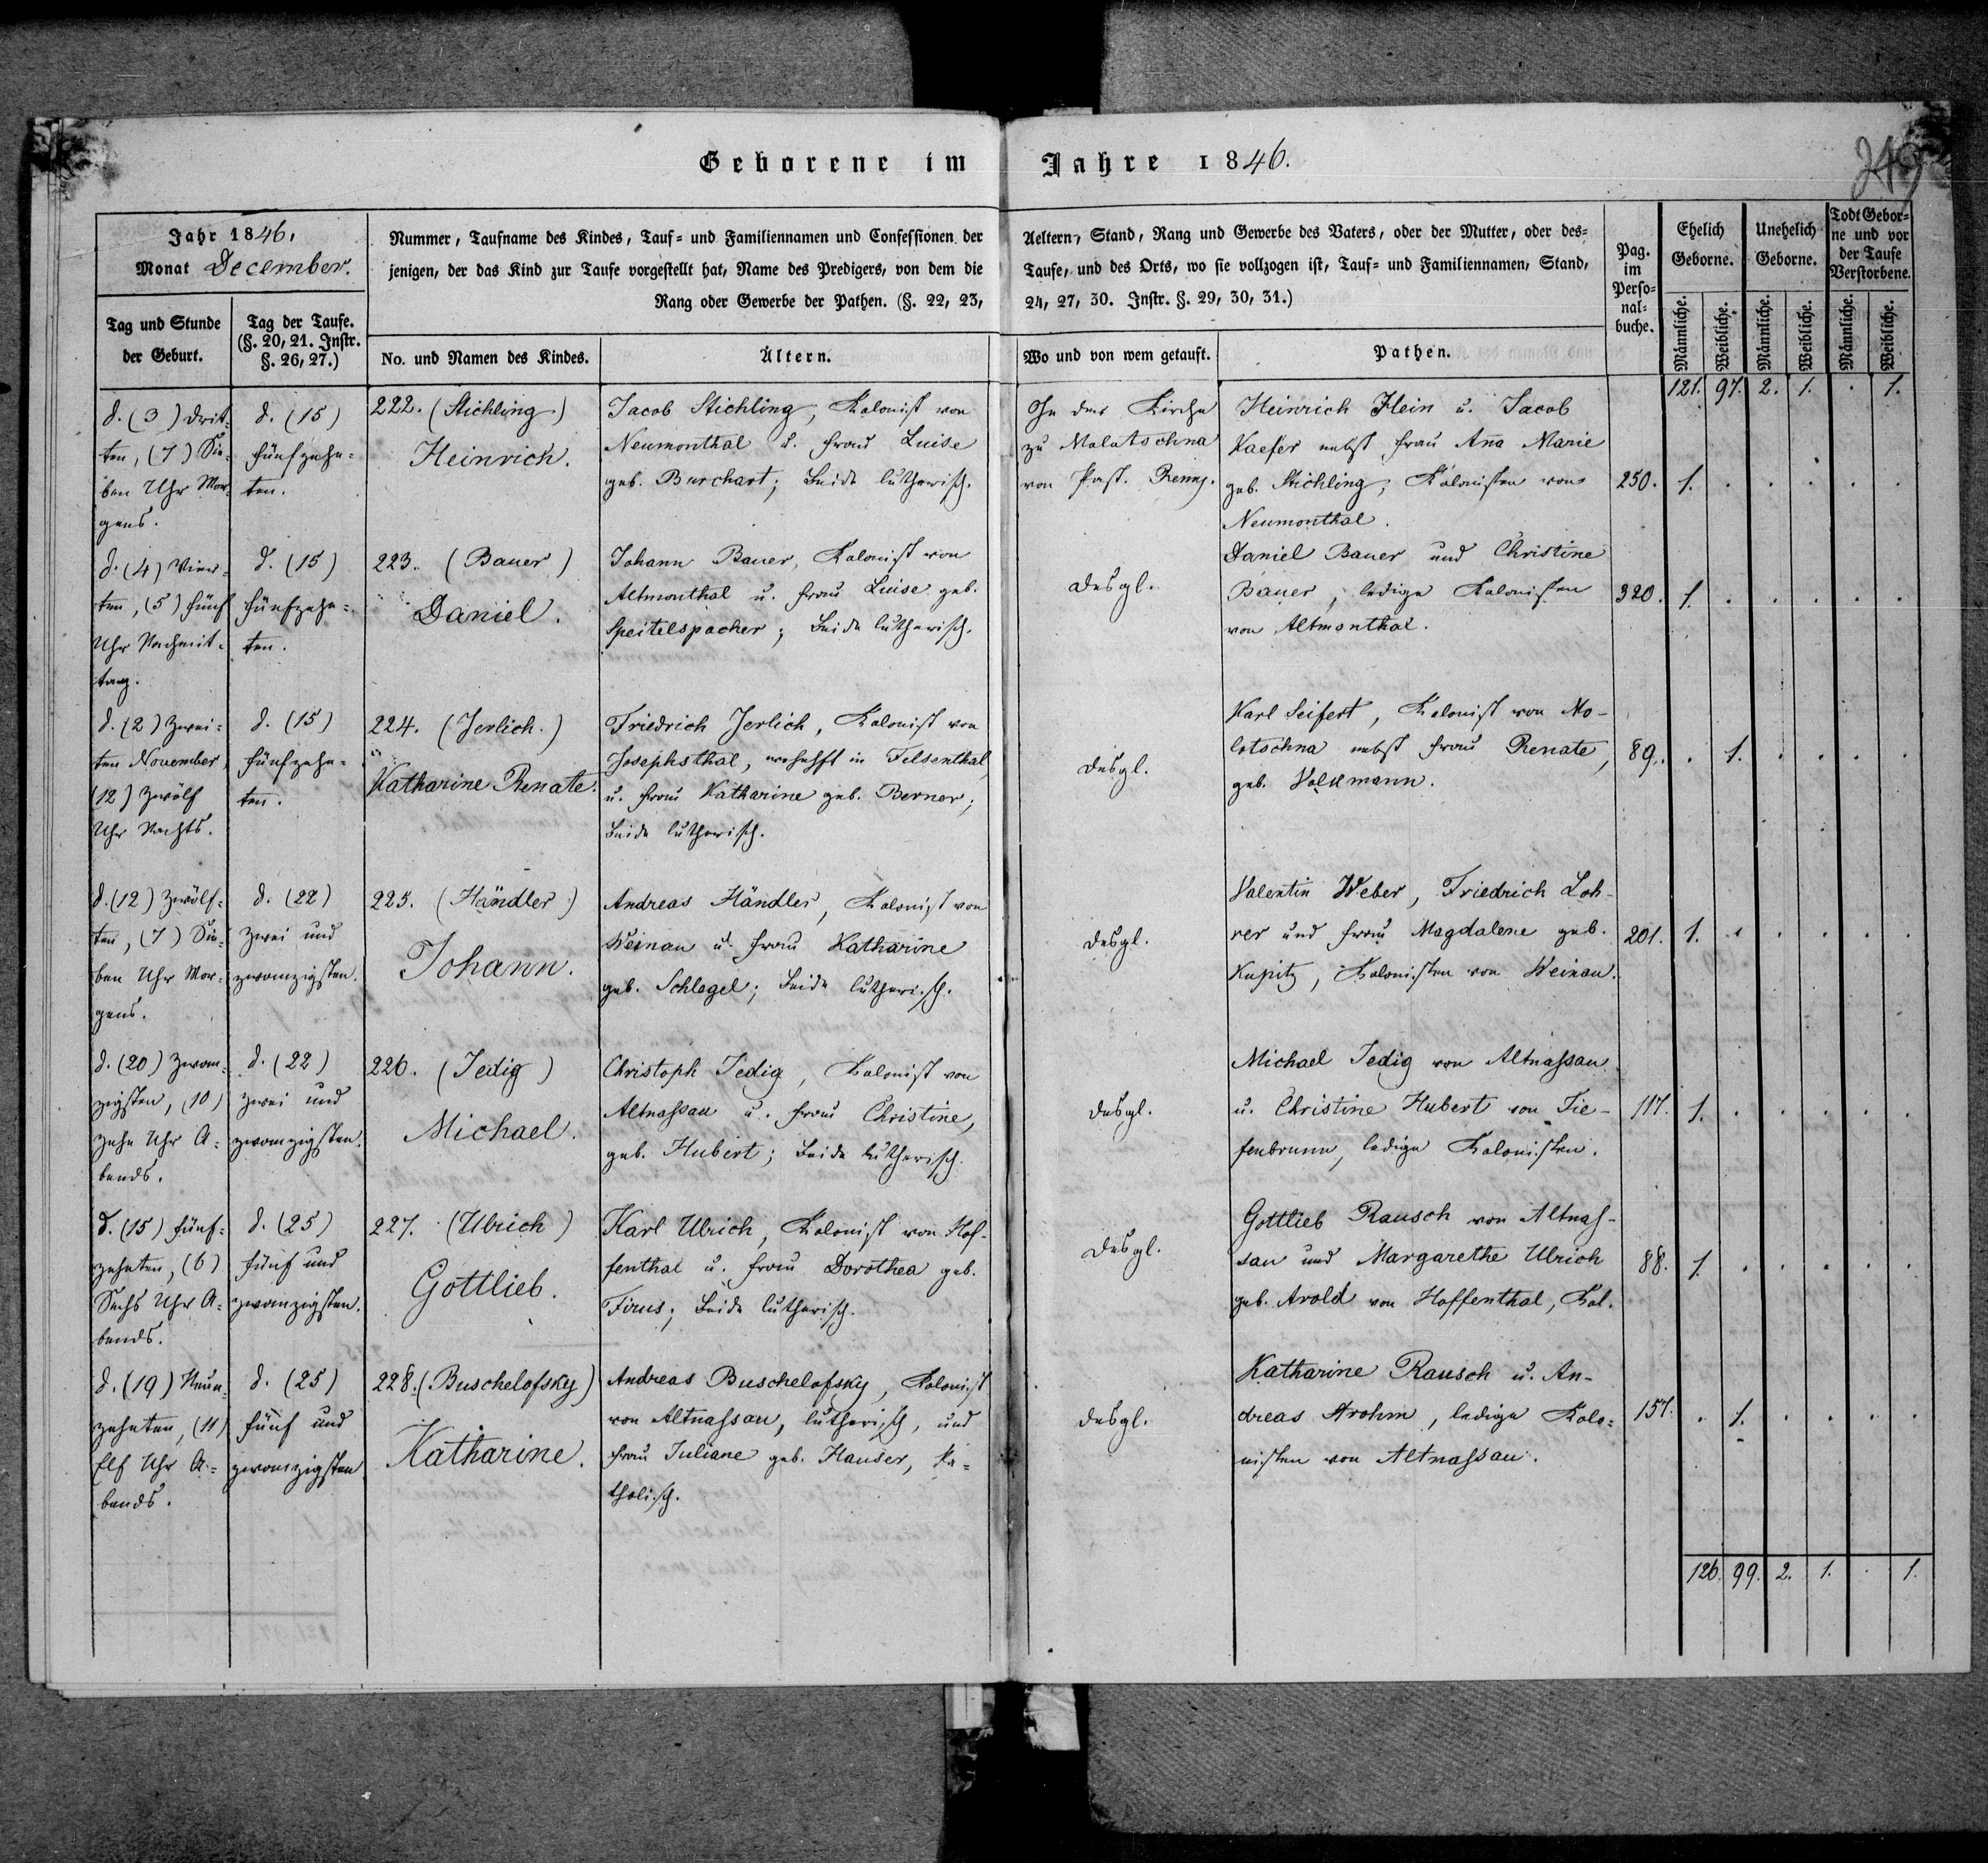 Geborene im Jahre 1846.
249
Jahr 1846.
Monat December.
Tag und Stunde
der Geburt.
Tag der Taufe.
(§. 20, 21. Instr.
§. 26, 27.)
Nummer, Taufname des Kindes, Tauf- und Familiennamen und Confessionen der
jenigen, der das Kind zur Taufe vorgestellt hat, Name des Predigers, von dem die
Rang oder Gewerbe der Pathen. (§. 22, 23,
No. und Namen des Kindes.
Ältern.
Aeltern, Stand, Rang und Gewerbe des Vaters, oder der Mutter, oder des-
Taufe, und des Orts, wo sie vollzogen ist, Tauf- und Familiennamen, Stand,
24, 27, 30. Instr. §. 29, 30, 31.)
Wo und von wem getauft.
Pathen.
Pag.
im
Perso-
nal-
buche.
Ehelich
Geborne.
Unehelich
Geborne.
Todt Gebor-
ne und vor
der Taufe
Verstorbene.
Männliche.
Weibliche.
Männliche.
Weibliche.
Männliche.
Weibliche.
121. 97. 2. 1. . 1.
d. (3) drit-
ten, (7) Sie-
ben Uhr Mor-
gens.
d. (15)
fünfzehn-
ten.
222. (Stichling)
Heinrich.
Jacob Stichling, Kolonist von
Neumonthal u. Frau Luise
geb. Burchart; beide lutherisch.
In der Kirche
zu Molotschna
von Past. Breny.
Heinrich Klein u. Jacob
Kaefer nebst Frau Anna Marie
geb. Stichling, Kolonisten von
Neumonthal.
250. 1. . . . . .
d. (4) Vier-
ten, (5) fünf
Uhr Nachmit-
tag.
d. (15)
fünfzehn-
ten.
223. (Bauer)
Daniel.
Johann Bauer, Kolonist von
Altmonthal u. Frau Luise geb.
Speitelspacher; beide lutherisch.
desgl.
Daniel Bauer und Christine
Bauer, ledige Kolonisten
von Altmonthal.
320. 1. . . . . .
d. (2) Zwei-
ten November,
(12) Zwölf
Uhr Nachts.
d. (15)
fünfzehn-
ten.
224. (Jerlich.)
Katharine Renate.
Friedrich Jerlich, Kolonist von
Josephsthal, wohnhft in Felsenthal,
u. Frau Katharine geb. Berner;
beide lutherisch.
desgl.
Karl Seifert, Kolonist von Mo-
lotschna nebst Frau Renate,
geb. Volkmann.
89. . 1. . . . .
d. (12) Zwölf-
ten, (7) Sie-
ben Uhr Mor-
gens.
d. (22)
zwei und
zwanzigsten.
225. (Händler)
Johann.
Andreas Händler, Kolonist von
Weinau u. Frau Katharine
geb. Schlegel; beide lutherisch.
desgl.
Valentin Weber, Friedrich Loh-
rer und Frau Magdalene geb.
Kupitz, Kolonisten von Weinau.
201. 1. . . . . .
d. (20) Zwan-
zigsten, (10)
zehn Uhr A-
bends.
d. (22)
zwei und
zwanzigsten.
226. (Jedig)
Michael.
Christoph Jedig, Kolonist von
Altnassau u. Frau Christine,
geb. Hubert; beide lutherisch.
desgl.
Michael Jedig von Altnassau
u. Christine Hubert von Tie-
fenbrunn, ledige Kolonisten.
117. 1. . . . . .
d. (15) fünf-
zehnten, (6)
Sechs Uhr A-
bends.
d. (25)
fünf und
zwanzigsten.
227. (Ulrich)
Gottlieb.
Karl Ulrich, Kolonist von Hof-
fenthal u. Frau Dorothea geb.
Firus; beide lutherisch.
desgl.
Gottlieb Rausch von Altnas-
sau und Margarethe Ulrich
geb. Arold von Hoffenthal, Kol.
88. 1. . . . . .
d. (19) Neun-
zehnten, (11)
Elf Uhr A-
bends.
d. (25)
fünf und
zwanzigsten
228. (Buschelofsky)
Katharine.
Andreas Buschelofsky, Kolonist
von Altnassau, lutherisch, und
Frau Juliane geb. Hauser, ka-
tholisch.
desgl.
Katharine Rausch u. An-
dreas Arohm, ledige Kolo-
nisten von Altnassau.
157. . 1. . . . .
126. 99. 2. 1. . 1.